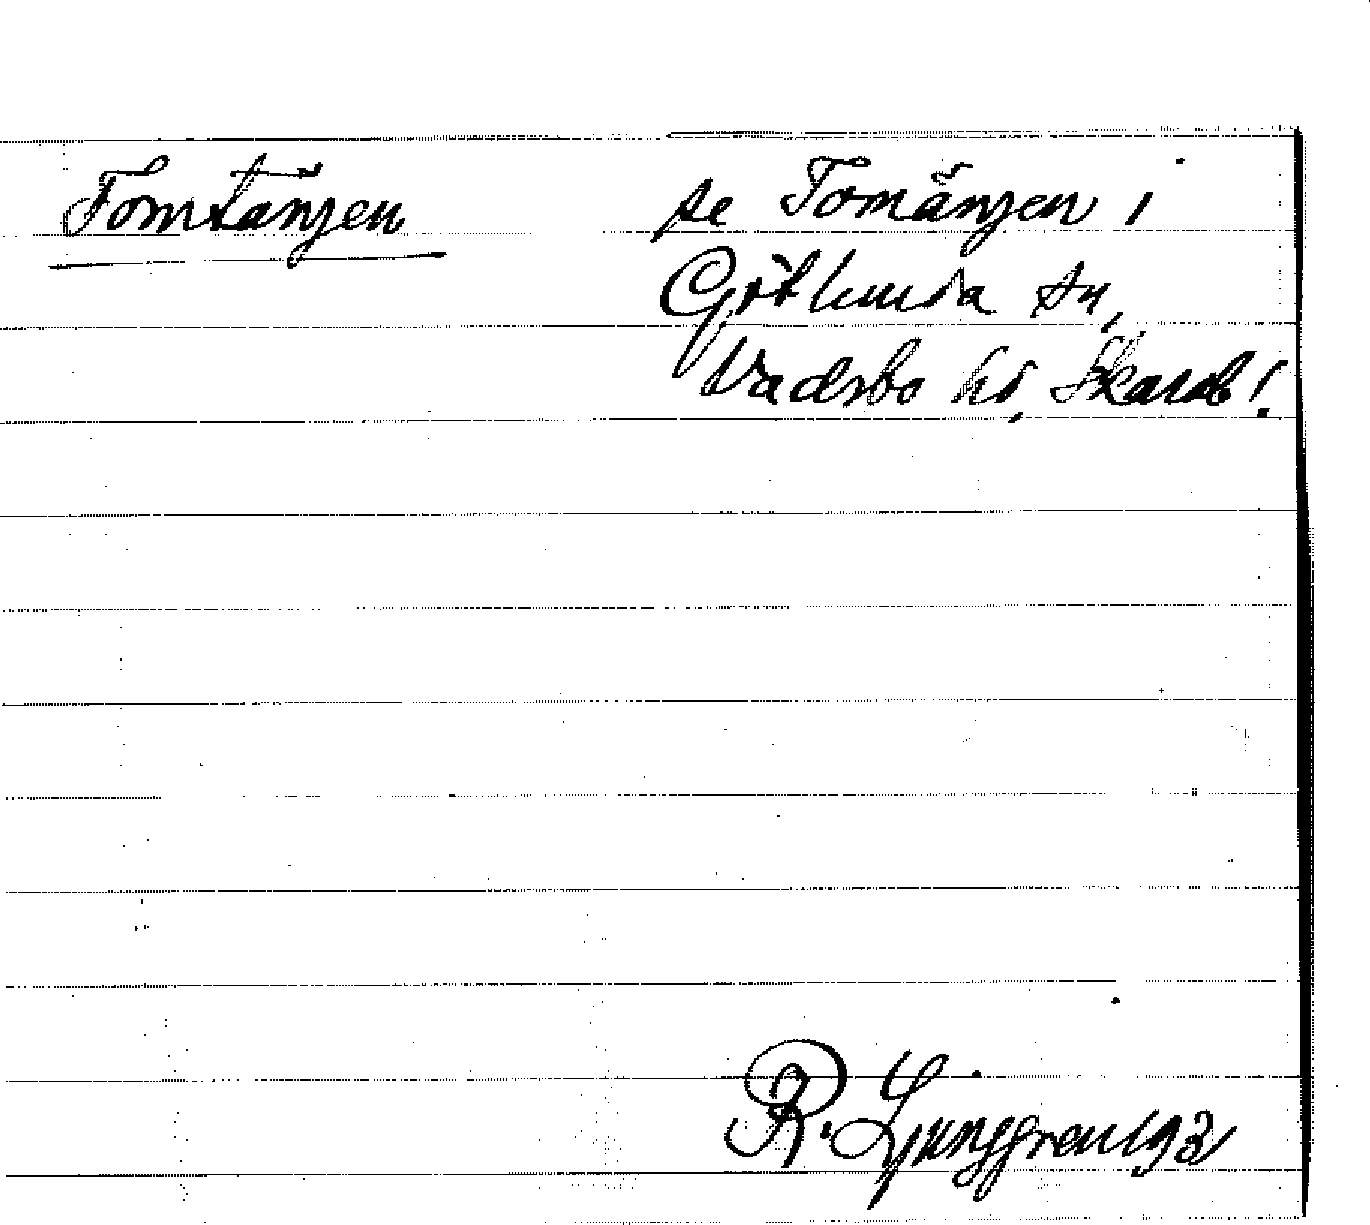 Tomtängen
se Tomängen i
Götlunda sn,
Vadsbo hd, Skarab!
R. Ljunggren 193